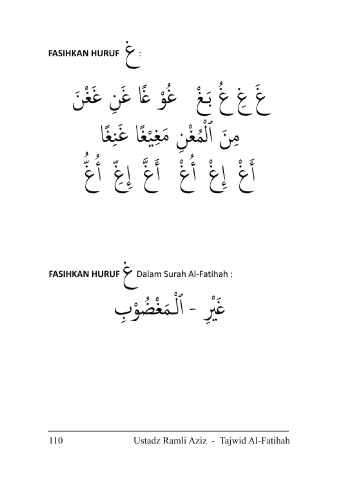 FASIHKAN HURUF غ :
غَ غِ غُ بَغْ غُوْ غًا غَنِ غَغْنَ
مِنَ ٱلْمُغْنِ مَغِيْغًا غَنِغًا
أَغْ إِغْ أُغْ أَغَّ إِغِّ أُغُّ
FASIHKAN HURUF غ Dalam Surah Al-Fatihah :
غَيْرِ - ٱلْمَغْضُوْبِ
110 Ustadz Ramli Aziz - Tajwid Al-Fatihah